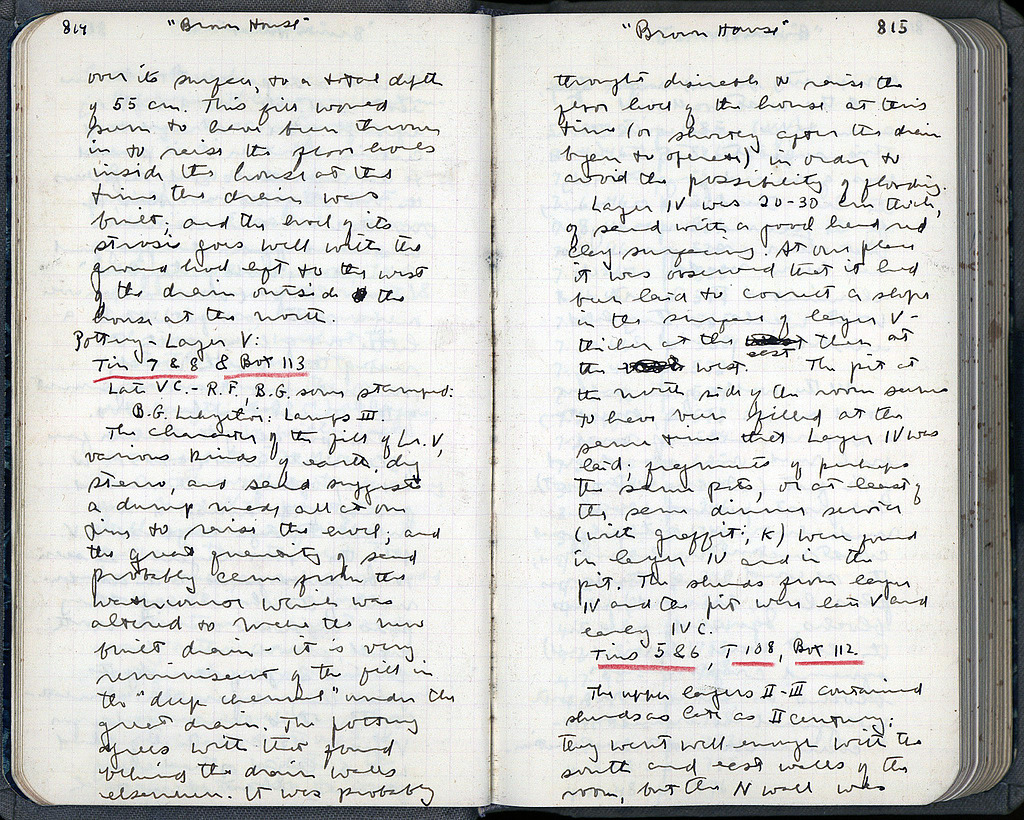 814
"Brown House"
over its surface, to a total depth
of 55 cm. This fill would
seem to have been thrown
in to raise the floor levels
inside the house at the
time the drain was
built, and the level of its
strosis goes well with the
ground level left to the west
of the drain outside the
house at the north.
Pottery - Layer V:
Tins 7 & 8 & Box 113
Late V C. - R.F., B.G. some stamped:
B.G. Lamps III
The character of the fills of Lr. V,
various kinds of earth, dug
stereo, and sand suggests
a dump made all at one
time to raise the level; and
the great quantity of sand
probably came from the
watercourse which was
altered to make the new
built drain - it is very
reminiscent of the fill in
the "deep channel" under the
great drain. The pottery
agrees with that found
behind the drain walls
elsewhere. It was probably
"Brown House"
815
thought desirable to raise the
floor level of the house at this
time (or shortly after the drain
began to operate) in order to
avoid the possibility of flooding.
Layer IV was 20-30 cm thick,
of sand with a good hard red
clay surfacing. At one place
it was observed that it had
been laid to correct a slope
in the surface of layer V -
thicker at the east than at
the west. The pit at
the north side of the room seems
to have been filled at the
same time that Layer IV was
laid: fragments of perhaps
the same pots, or at least of
the same dinner service
(with graffiti, K) were found
in layer IV and in the
pit. The sherds from layer
IV and the pit were late V and
early IV C.
Tins 5 & 6, T 108, Box 112
The upper layers II-III contained
sherds as late as II century:
they went well enough with the
south and east walls of the
room, but the N wall was